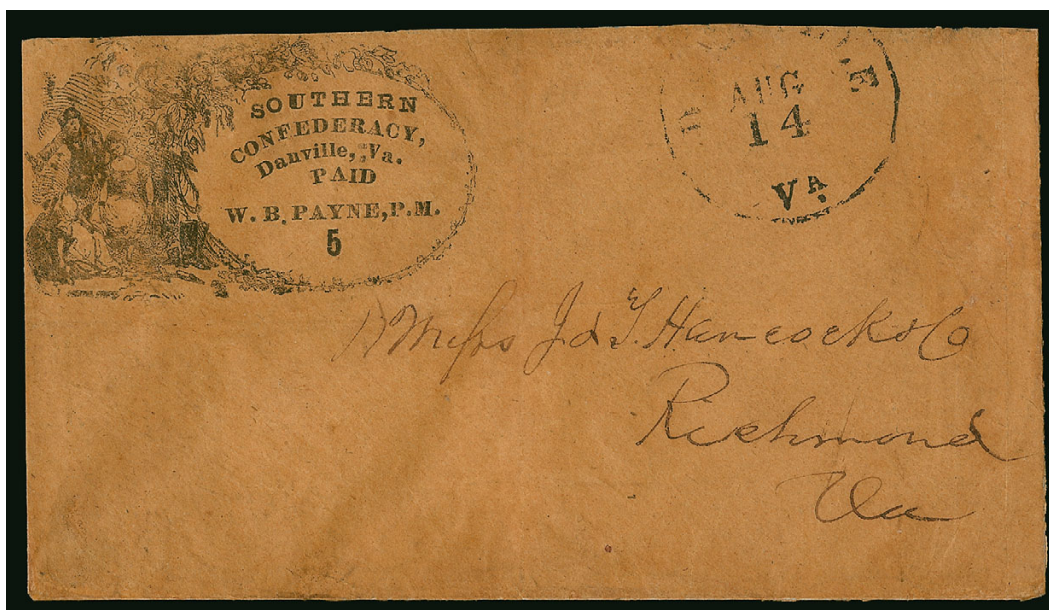 SOUTHERN
CONFEDERACY,
Danville, Va.
PAID
W. B. PAYNE, P.M.
5
AUG
14
VA
Messrs J & T. Hancock & Co
Richmond
Va